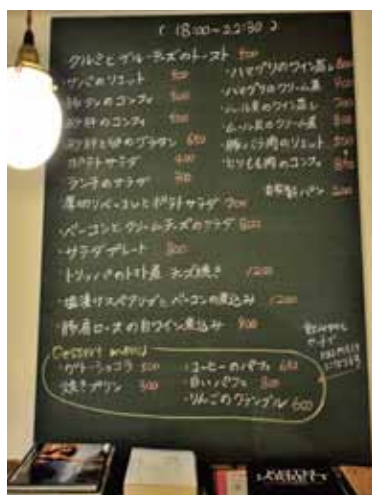 ( 18:00～22:30 )
クルミとブルーチーズのトースト 500
・サバのリエット
・砂肝のコンフィ
・砂肝と卵のグラタン 650
・ポテトサラダ 400
厚切りベーコンとポテトサラダ 700
・ベーコンとクリームチーズのサラダ 800
・サラダプレート 800
・トリッパのトマト煮 チーズ焼き 1200
・塩漬けスペアリブとベーコンの煮込み 1200
・豚肩ロースの白ワイン煮込み 900
・ハマグリのワイン蒸し
・ハマグリのクリーム煮
・ムール貝のワイン蒸し
・ムール貝のクリーム煮
・豚バラ肉のリエット
・とりもも肉のコンフィ
自家製パン 200
Dessert menu
・ガトーショコラ 500
・焼きプリン 300
・コーヒーのパフェ 650
・白いパフェ 800
・りんごのクランブル 600